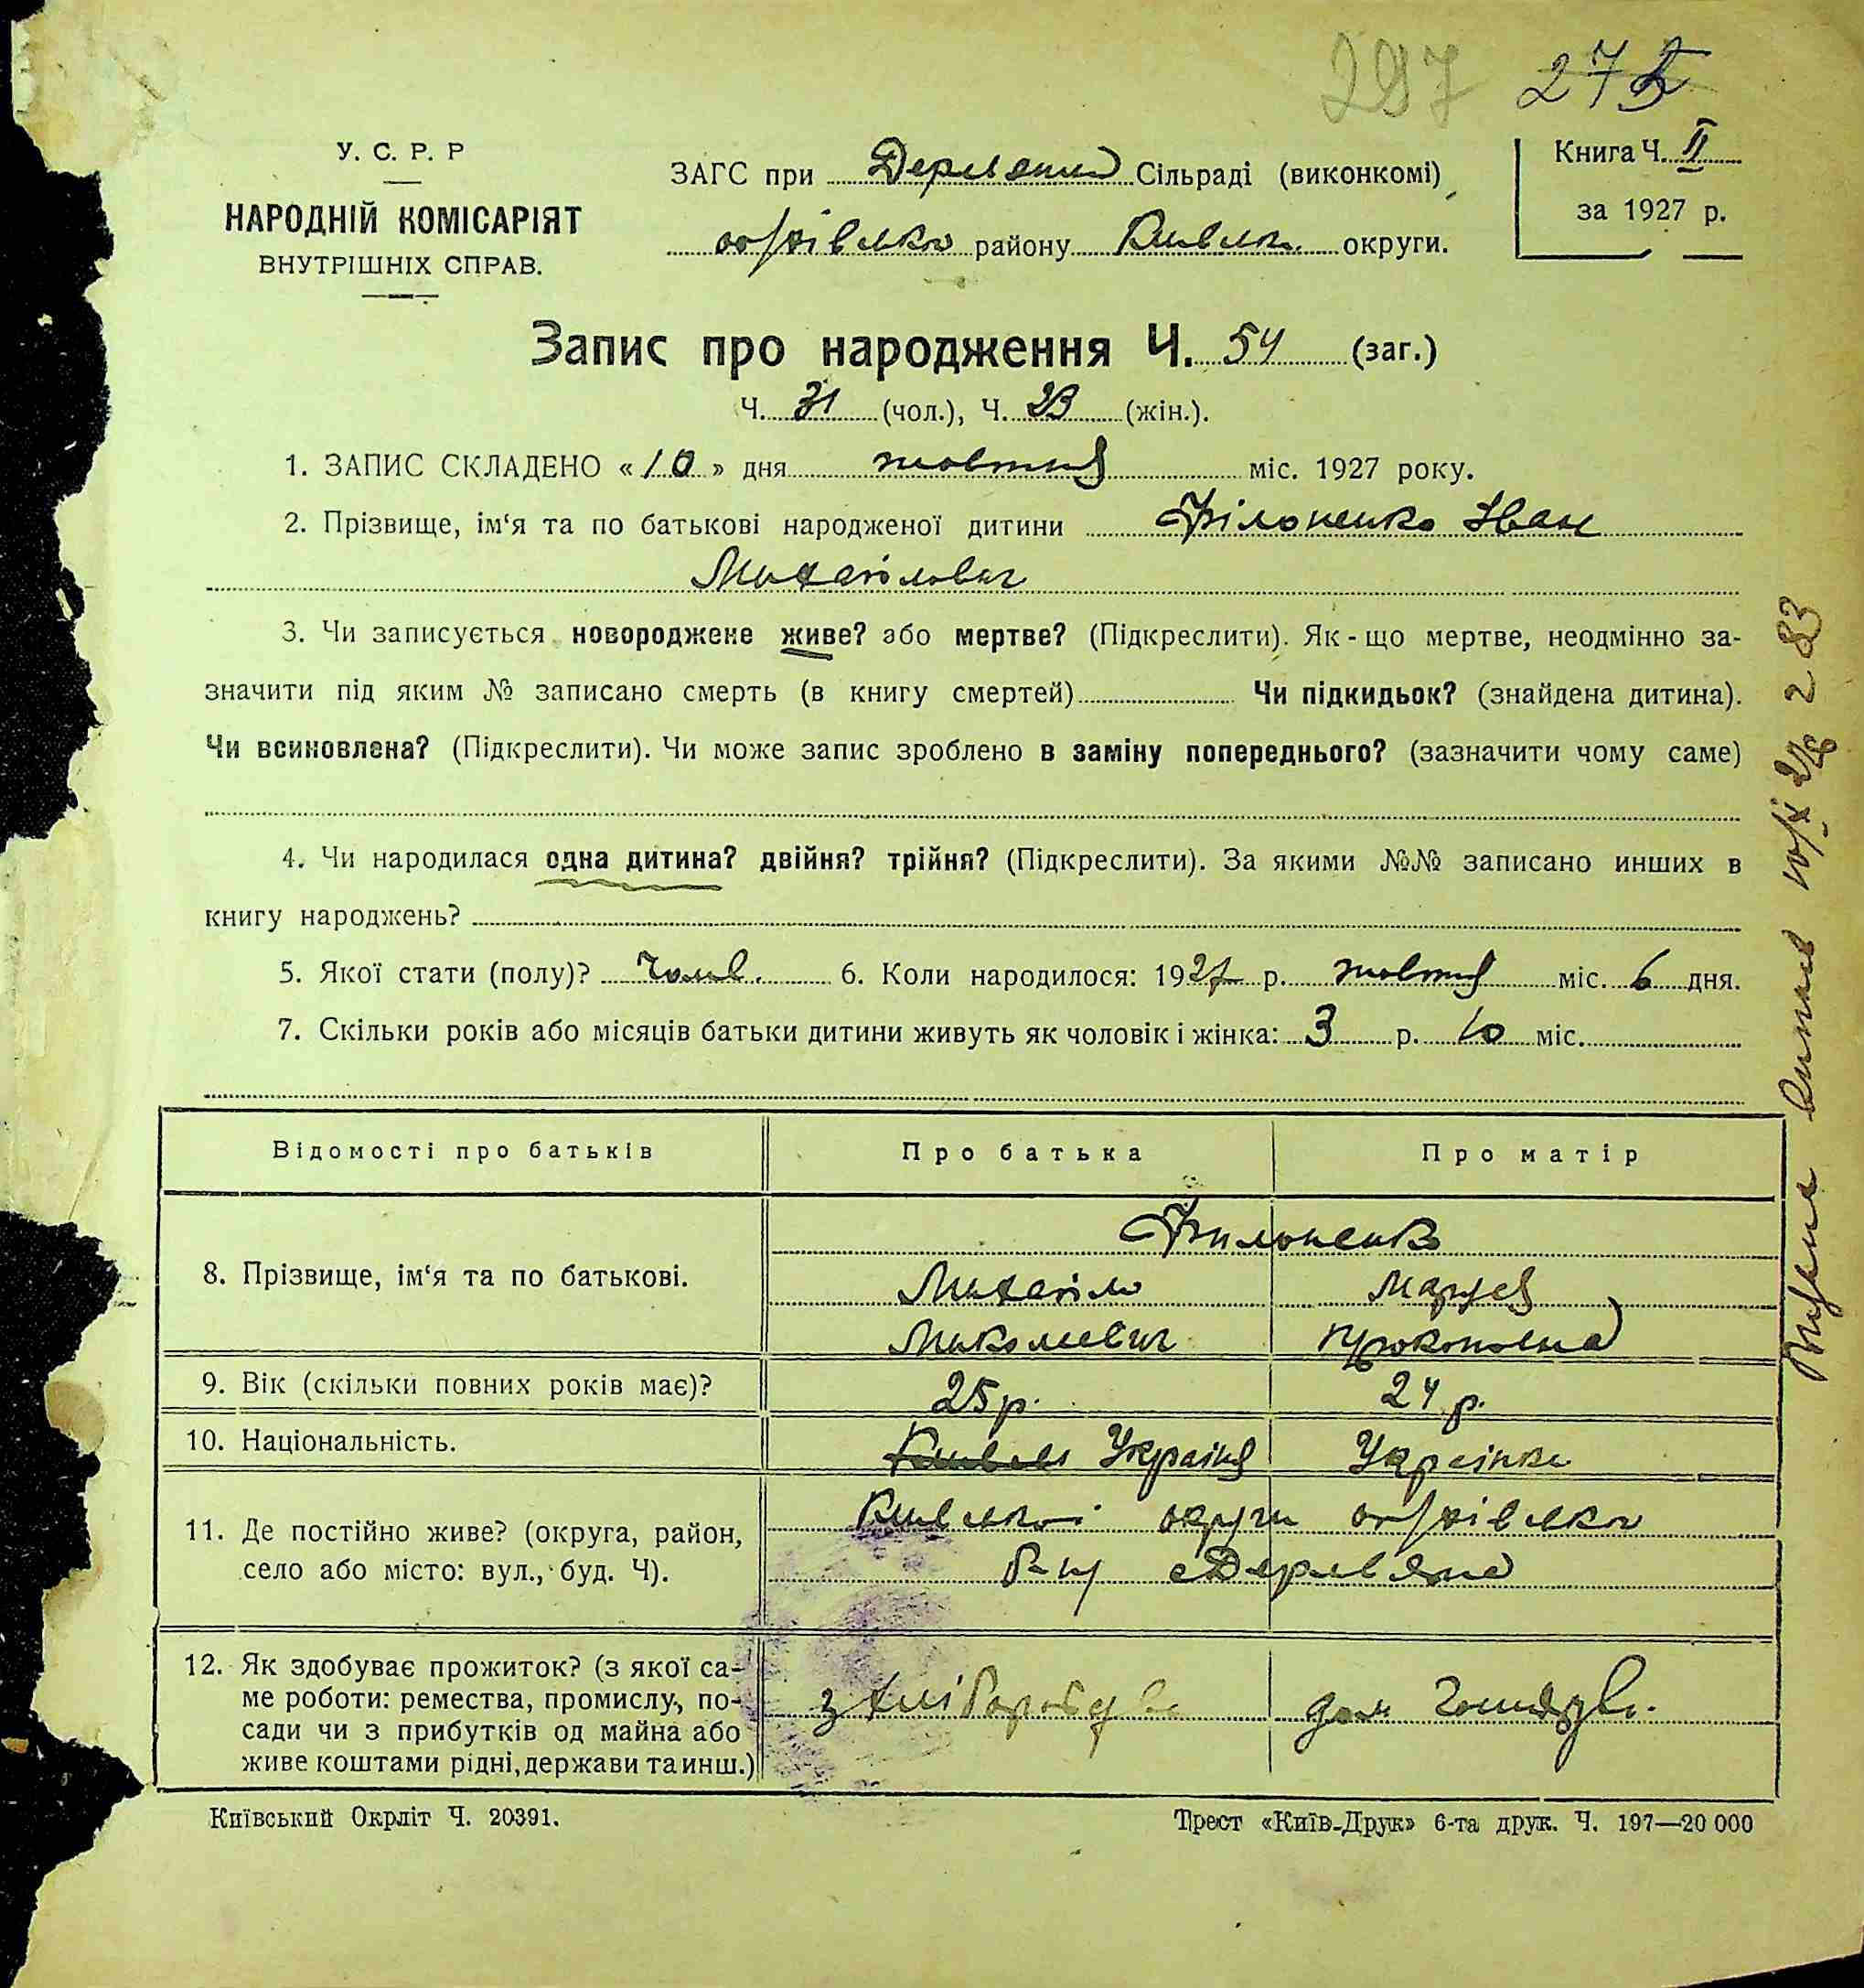 297 275
У. С. Р. Р
НАРОДНІЙ КОМІСАРІЯТ
ВНУТРІШНІХ СПРАВ.
ЗАГС при Деревянній Сільраді (виконкомі)
обухівсько району Київськ. округи.
Книга Ч. II
за 1927 р.
Запис про народження Ч. 54 (заг.)
Ч. 31 (чол.), Ч. 23 (жін.).
1. ЗАПИС СКЛАДЕНО «10» дня жовтня міс. 1927 року.
2. Прізвище, ім‘я та по батькові народженої дитини Філоненко Іван
Михайлович
3. Чи записується новороджене живе? або мертве? (Підкреслити). Як-що мертве, неодмінно за-
значити під яким № записано смерть (в книгу смертей) Чи підкидьок? (знайдена дитина).
Чи всиновлена? (Підкреслити). Чи може запис зроблено в заміну попереднього? (зазначити чому саме)
4. Чи народилася одна дитина? двійня? трійня? (Підкреслити). За якими №№ записано инших в
книгу народжень?
5. Якої стати (полу)? Чолов. 6. Коли народилося: 1927 р. жовтня міс. 6 дня.
7. Скільки років або місяців батьки дитини живуть як чоловік і жінка: 3 р. 10 міс.
Відомості про батьків Про батька Про матір
8. Прізвище, ім‘я та по батькові.
Филоненко
Михайло Марія
Миколаевич Прокоповна
9. Вік (скільки повних років має)? 25 р. 24 р.
10. Національність. Україн Українка
11. Де постійно живе? (округа, район,
село або місто: вул., буд. Ч).
Київської округи обухівсько
р-ну с Деревяна
12. Як здобуває прожиток? (з якої са-
ме роботи: ремества, промислу, по-
сади чи з прибутків од майна або
живе коштами рідні, держави та инш.)
з хліборобства дом
Київський Окрліт Ч. 20391.
Трест «Київ-Друк» 6-та друк. Ч. 197—20 000
283